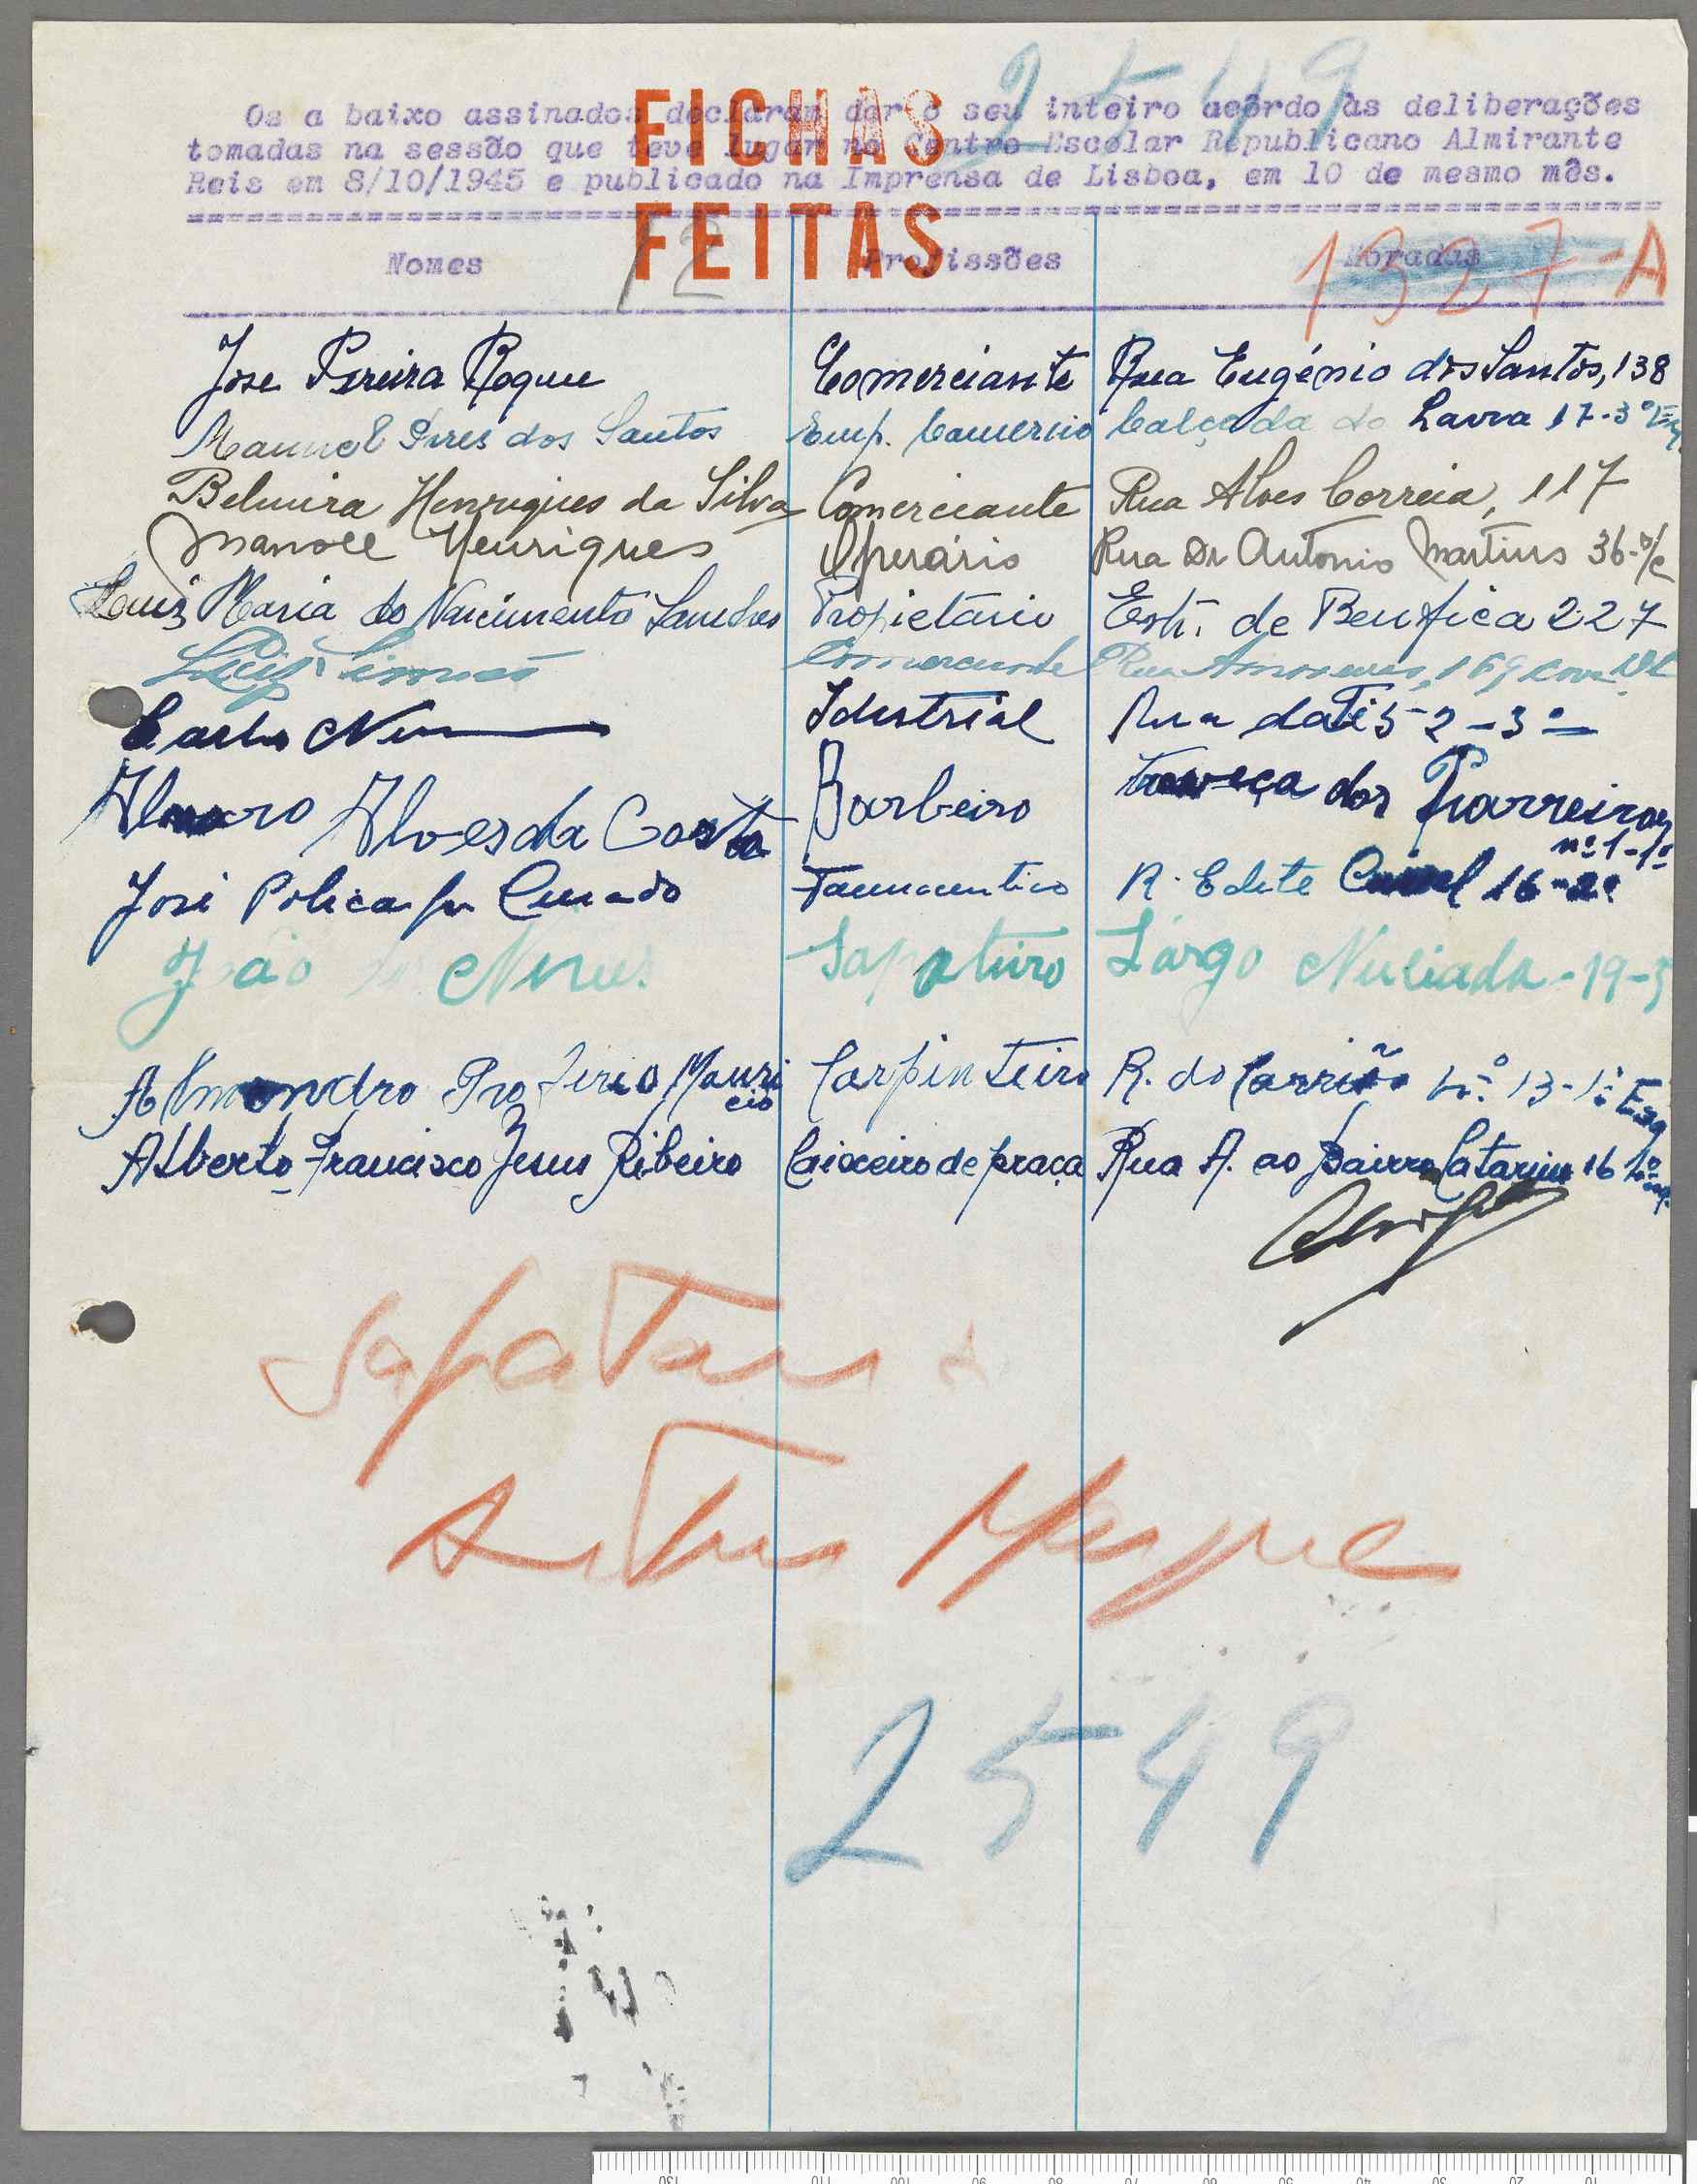 2549
FICHAS
FEITAS
Os a baixo assinados declaram dar o seu inteiro acôrdo às deliberações
tomadas na sessão que teve lugar no Centro Escolar Republicano Almirante
Reis em 8/10/1945 e publicado na Imprensa de Lisboa, em 10 de mesmo mês.
Nomes Profissões Moradas
12 1327-A
Jose Pereira Roque Comerciante Rua Eugénio dos Santos, 138
Manuel Pires dos Santos Emp. Comercio Calçada do Lavra 17-3º Esq
Belmira Henriques da Silva Comerciante Rua Alves Correia, 117
Manoel Henriques Operário Rua Dr Antonio Martins 36-r/c
Luiz Maria do Nascimento Sanches Propietário Estr. de Benfica 227
Luiz Simões Comerciante Rua 169
Carlos Idustrial Rua da Fé 52-3º
Alvaro Alves da Costa Barbeiro dos
nº 1-1º
José Policarpo Farmaceutico R. Edite 16-2º
João Neves Sapateiro Largo 19-5
Almendro Profirio Mauri Carpinteiro R. do Carrião nº 13-1º Esq
cio
Alberto Francisco Jesus Ribeiro Caixeiro de praça Rua A. ao Bairro Catarino 16
Sapataria
Artur
2549
130 110 100 90 80 70 60 50 40 30 20 10